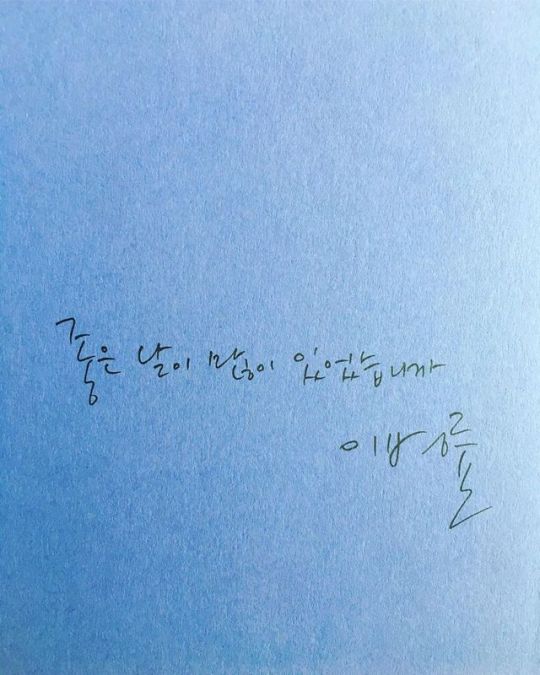 좋은 날이 많이 있었습니까
이병률